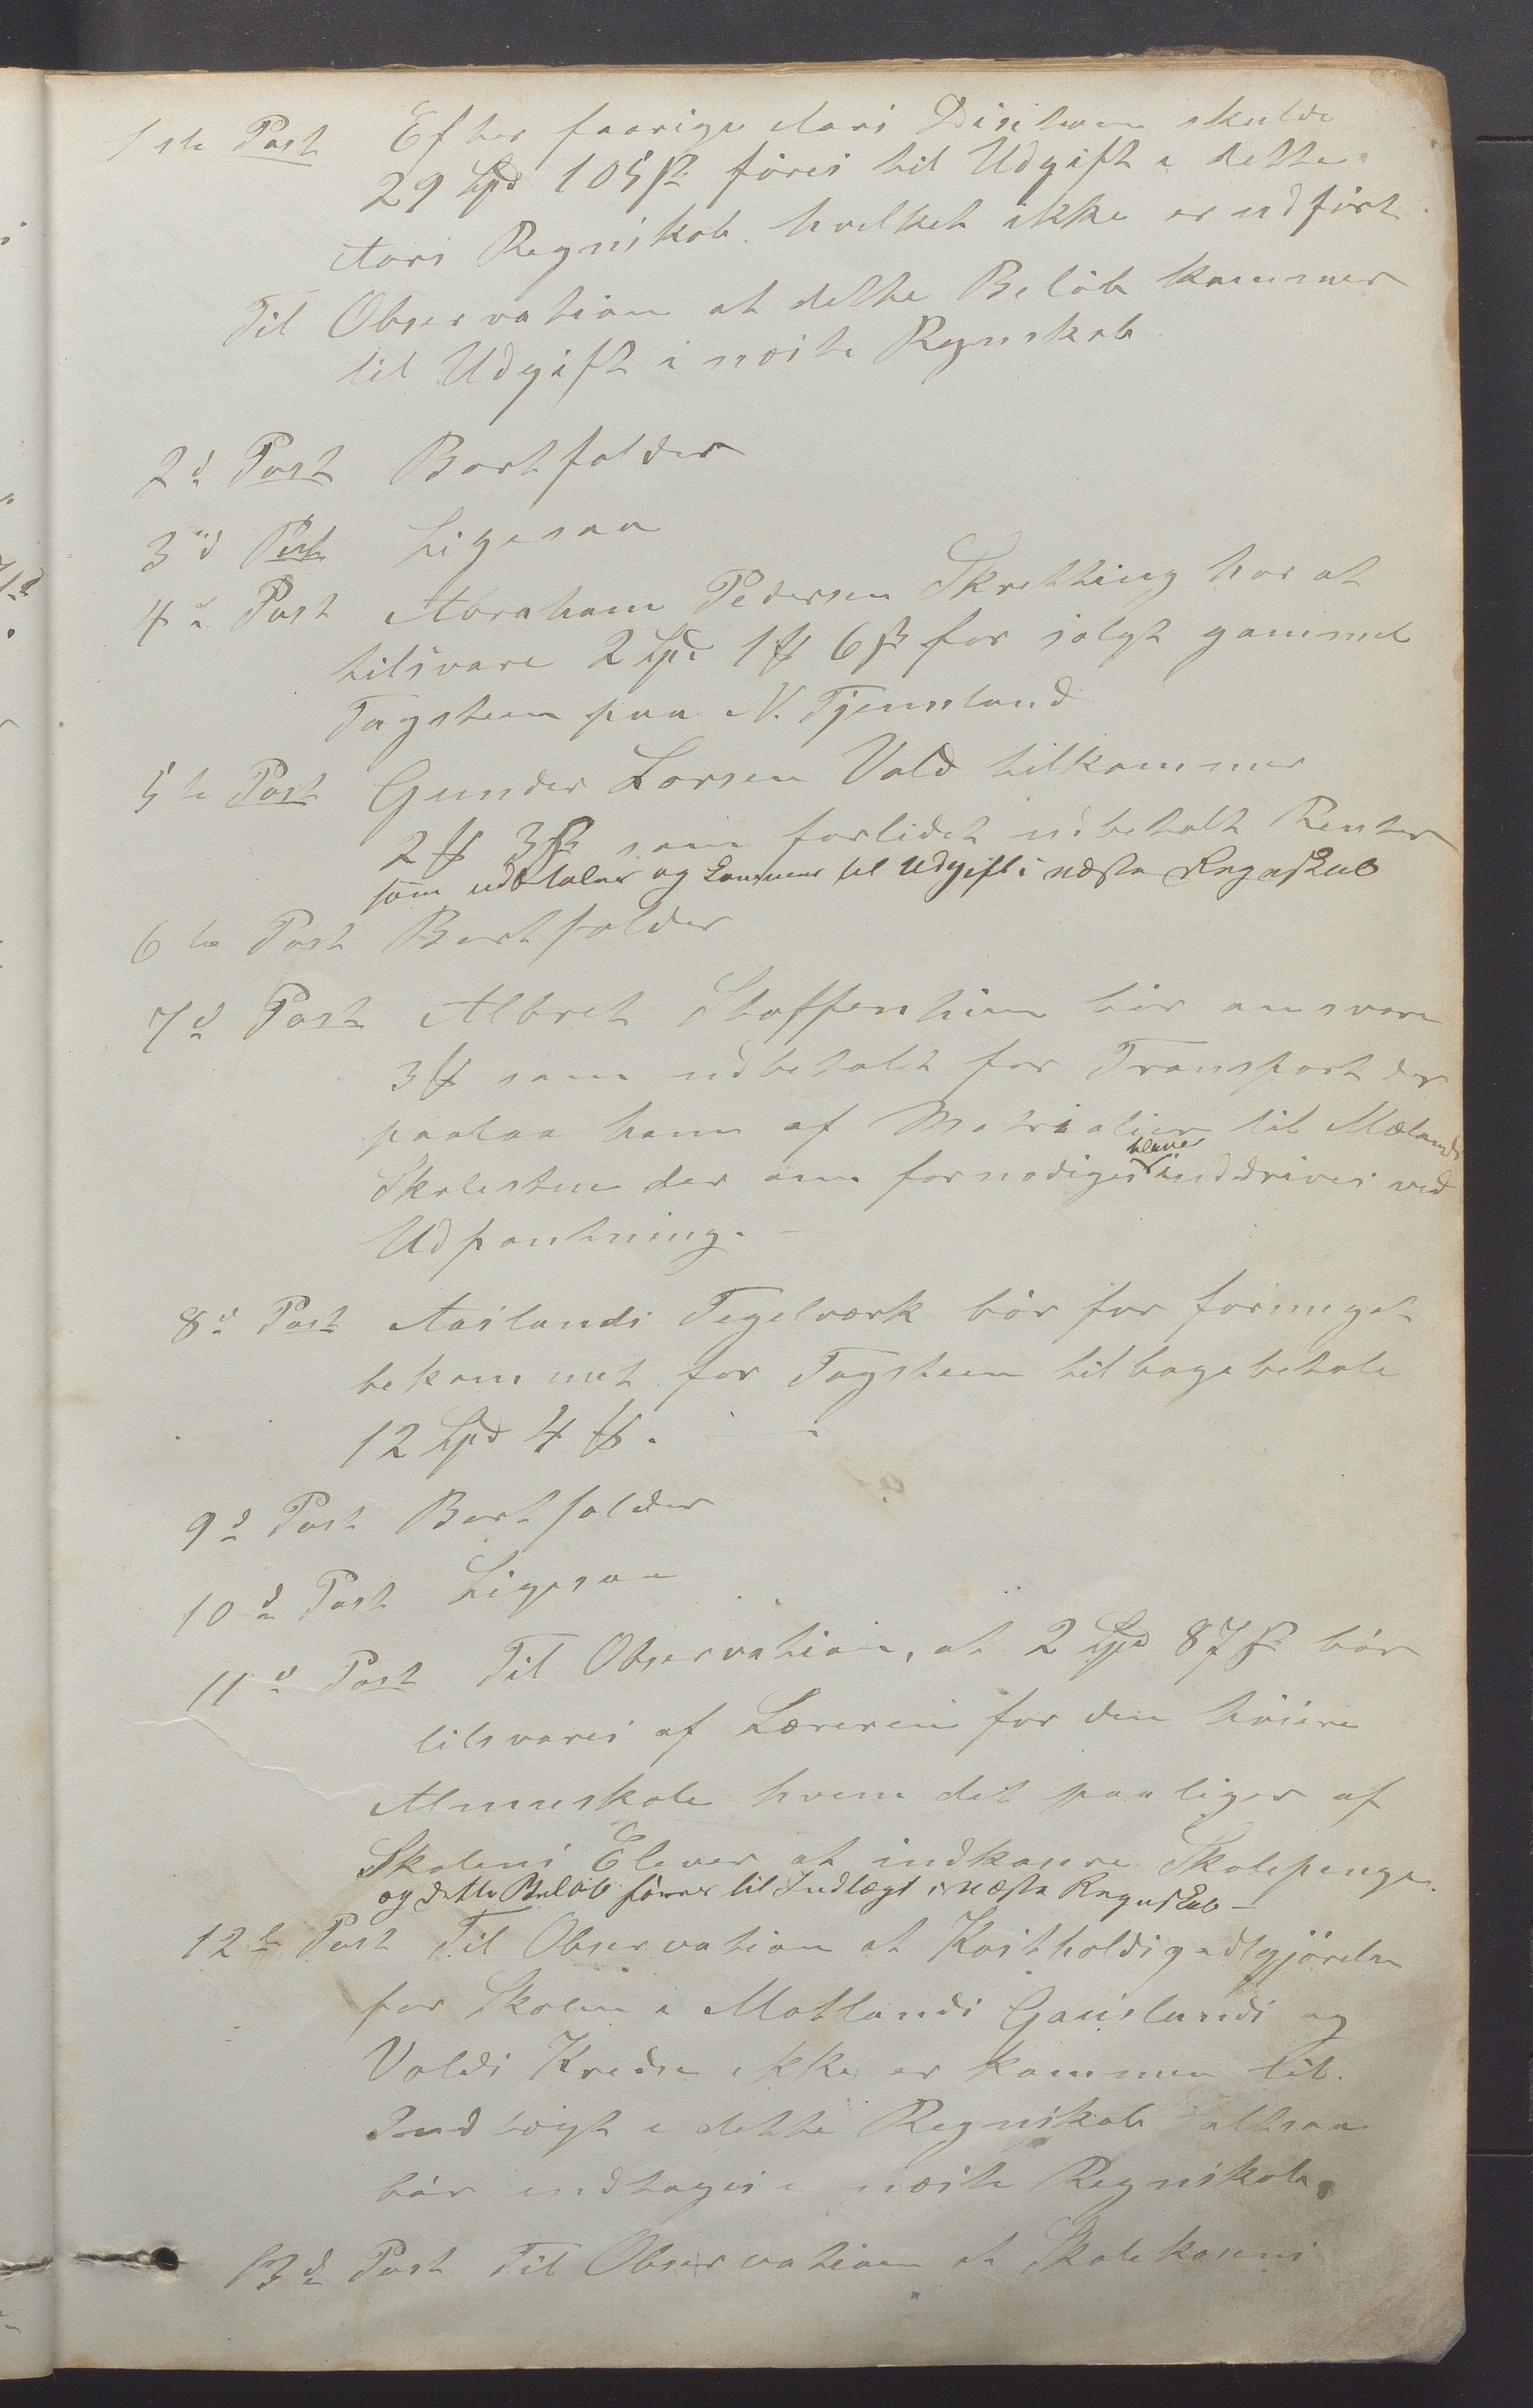 1ste Post Efter forrige Aars Desition skulde
29 Spd 105 ß föres til Udgift i dette
Aars Regnskab hvilket ikke er udfört
Til Observation at dette Belöb kommer
til Udgift i næste Regnskab
2d Post Bortfalder
3d Post Ligesaa
4d Post Abraham Pedersen Skretting har at
tilsvare 2 Spd 1 # 6 ß for solgt gammel
Tagsteen paa N. Tjemsland
5te Post Gunder Larsen Vold tilkommer
2 # 3 ß som forlidet udbetalt Renter
som udbetales og kommer til Udgift i næste Regnskab
6te Post Bortfalder
7d Post Albret Stoffenhien bör ansvare
3 # som udbetalt for Transport der
paalaa ham af Matrialier til Mælands
Skolestue der om fornödiges bliver inddrives ved
Udpantning.
8d Post Aaslands Tegelværk bör for formeget
bekommet for Tagsteen tilbagebetale
12 Spd 4 #.
9d Post Bortfalder
10d Post Ligesaa
11d Post Til Observation, at 2 Spd 87 ß bör
tilsvares af Læreren for den höiere
Almuskole hvem det paaliger af
Skolens Elever at indkassere Skolepenge.
og dette Belöb föres til Indtægt i næste Regnskab -
12te Post Til Observation at Kostholdsgodtgjörelse
for Skolen i Motlands Gauslands og
Volds Kredse ikke er kommen til
Indtægt i dette Regnskab altsaa
bör indtages i næste Regnskab.
13d Post Til Observation at Skolekassens